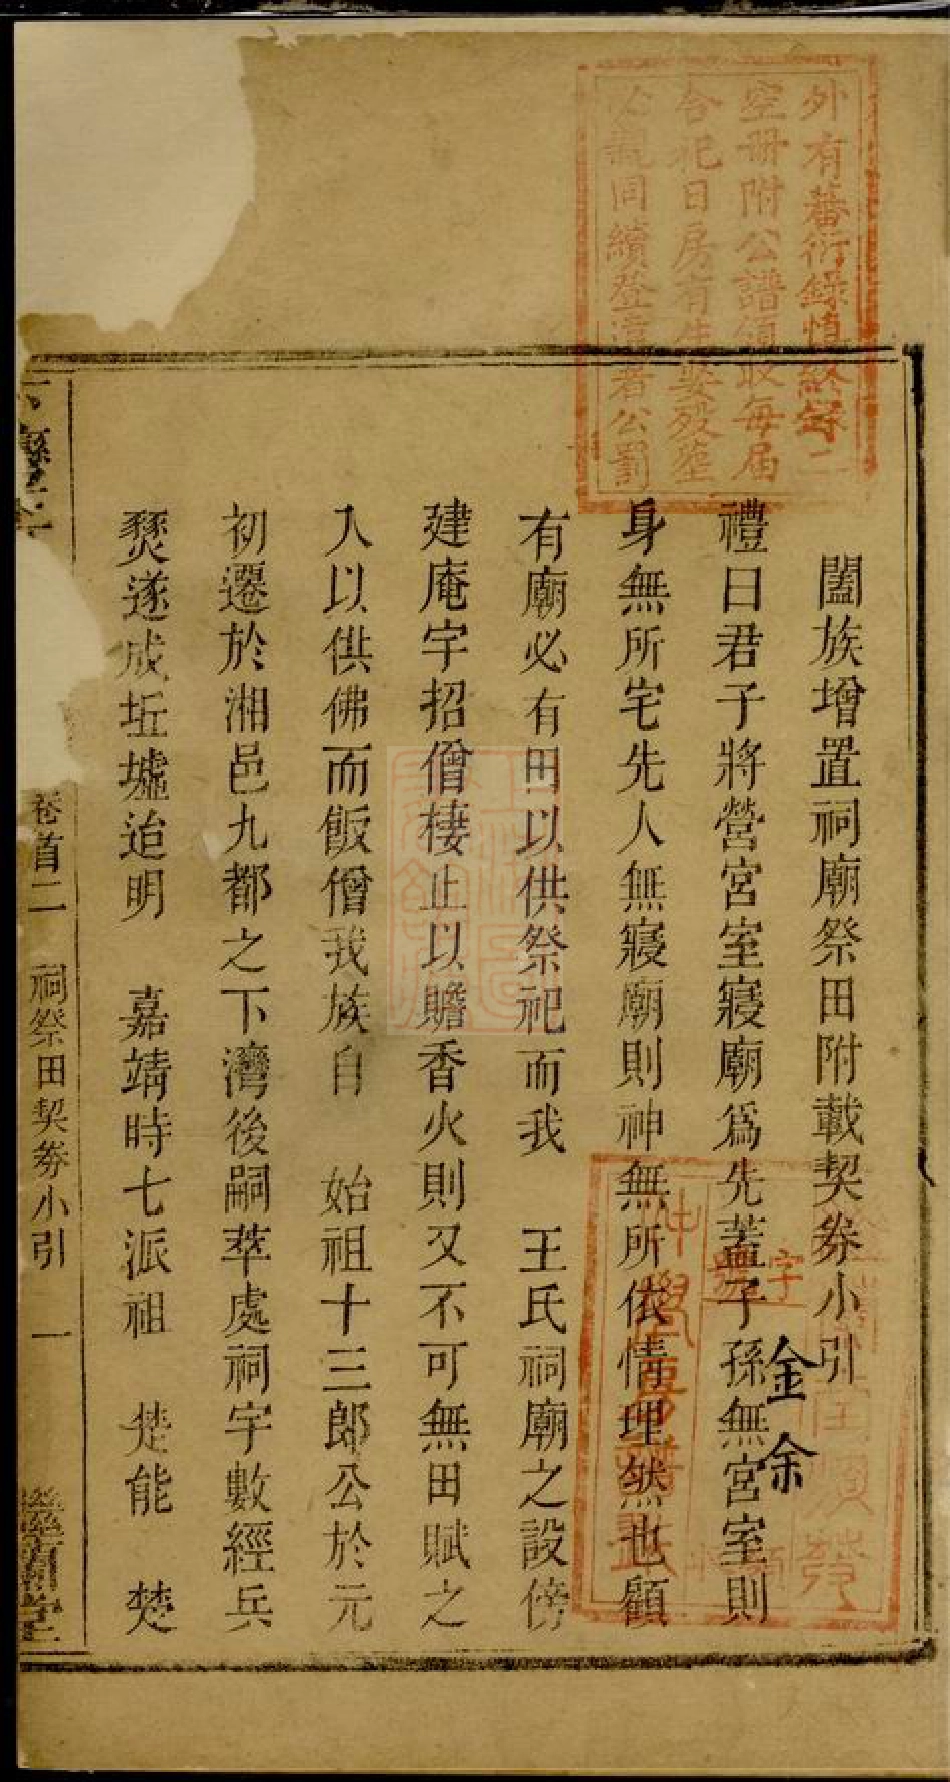 外有蕃衍錄慎終錄二
空冊附公譜領收每届
合祀日房有生娶殁塟
必親同續登違者公罰
闔族增置祠廟祭田附載契券小引
禮曰君子將營宮室寢廟爲先蓋子孫無宮室則
身無所宅先人無寢廟則神無所依情理然也顧
有廟必有田以供祭祀而我 王氏祠廟之設傍
建庵宇招僧棲止以贍香火則又不可無田賦之
入以供佛而飯僧我族自 始祖十三郎公於元
初遷於湘邑九都之下灣後嗣萃處祠宇數經兵
燹遂成坵墟迨明 嘉靖時七派祖 楚能 楚
卷首二 祠祭田契券小引 一
金余
字 號